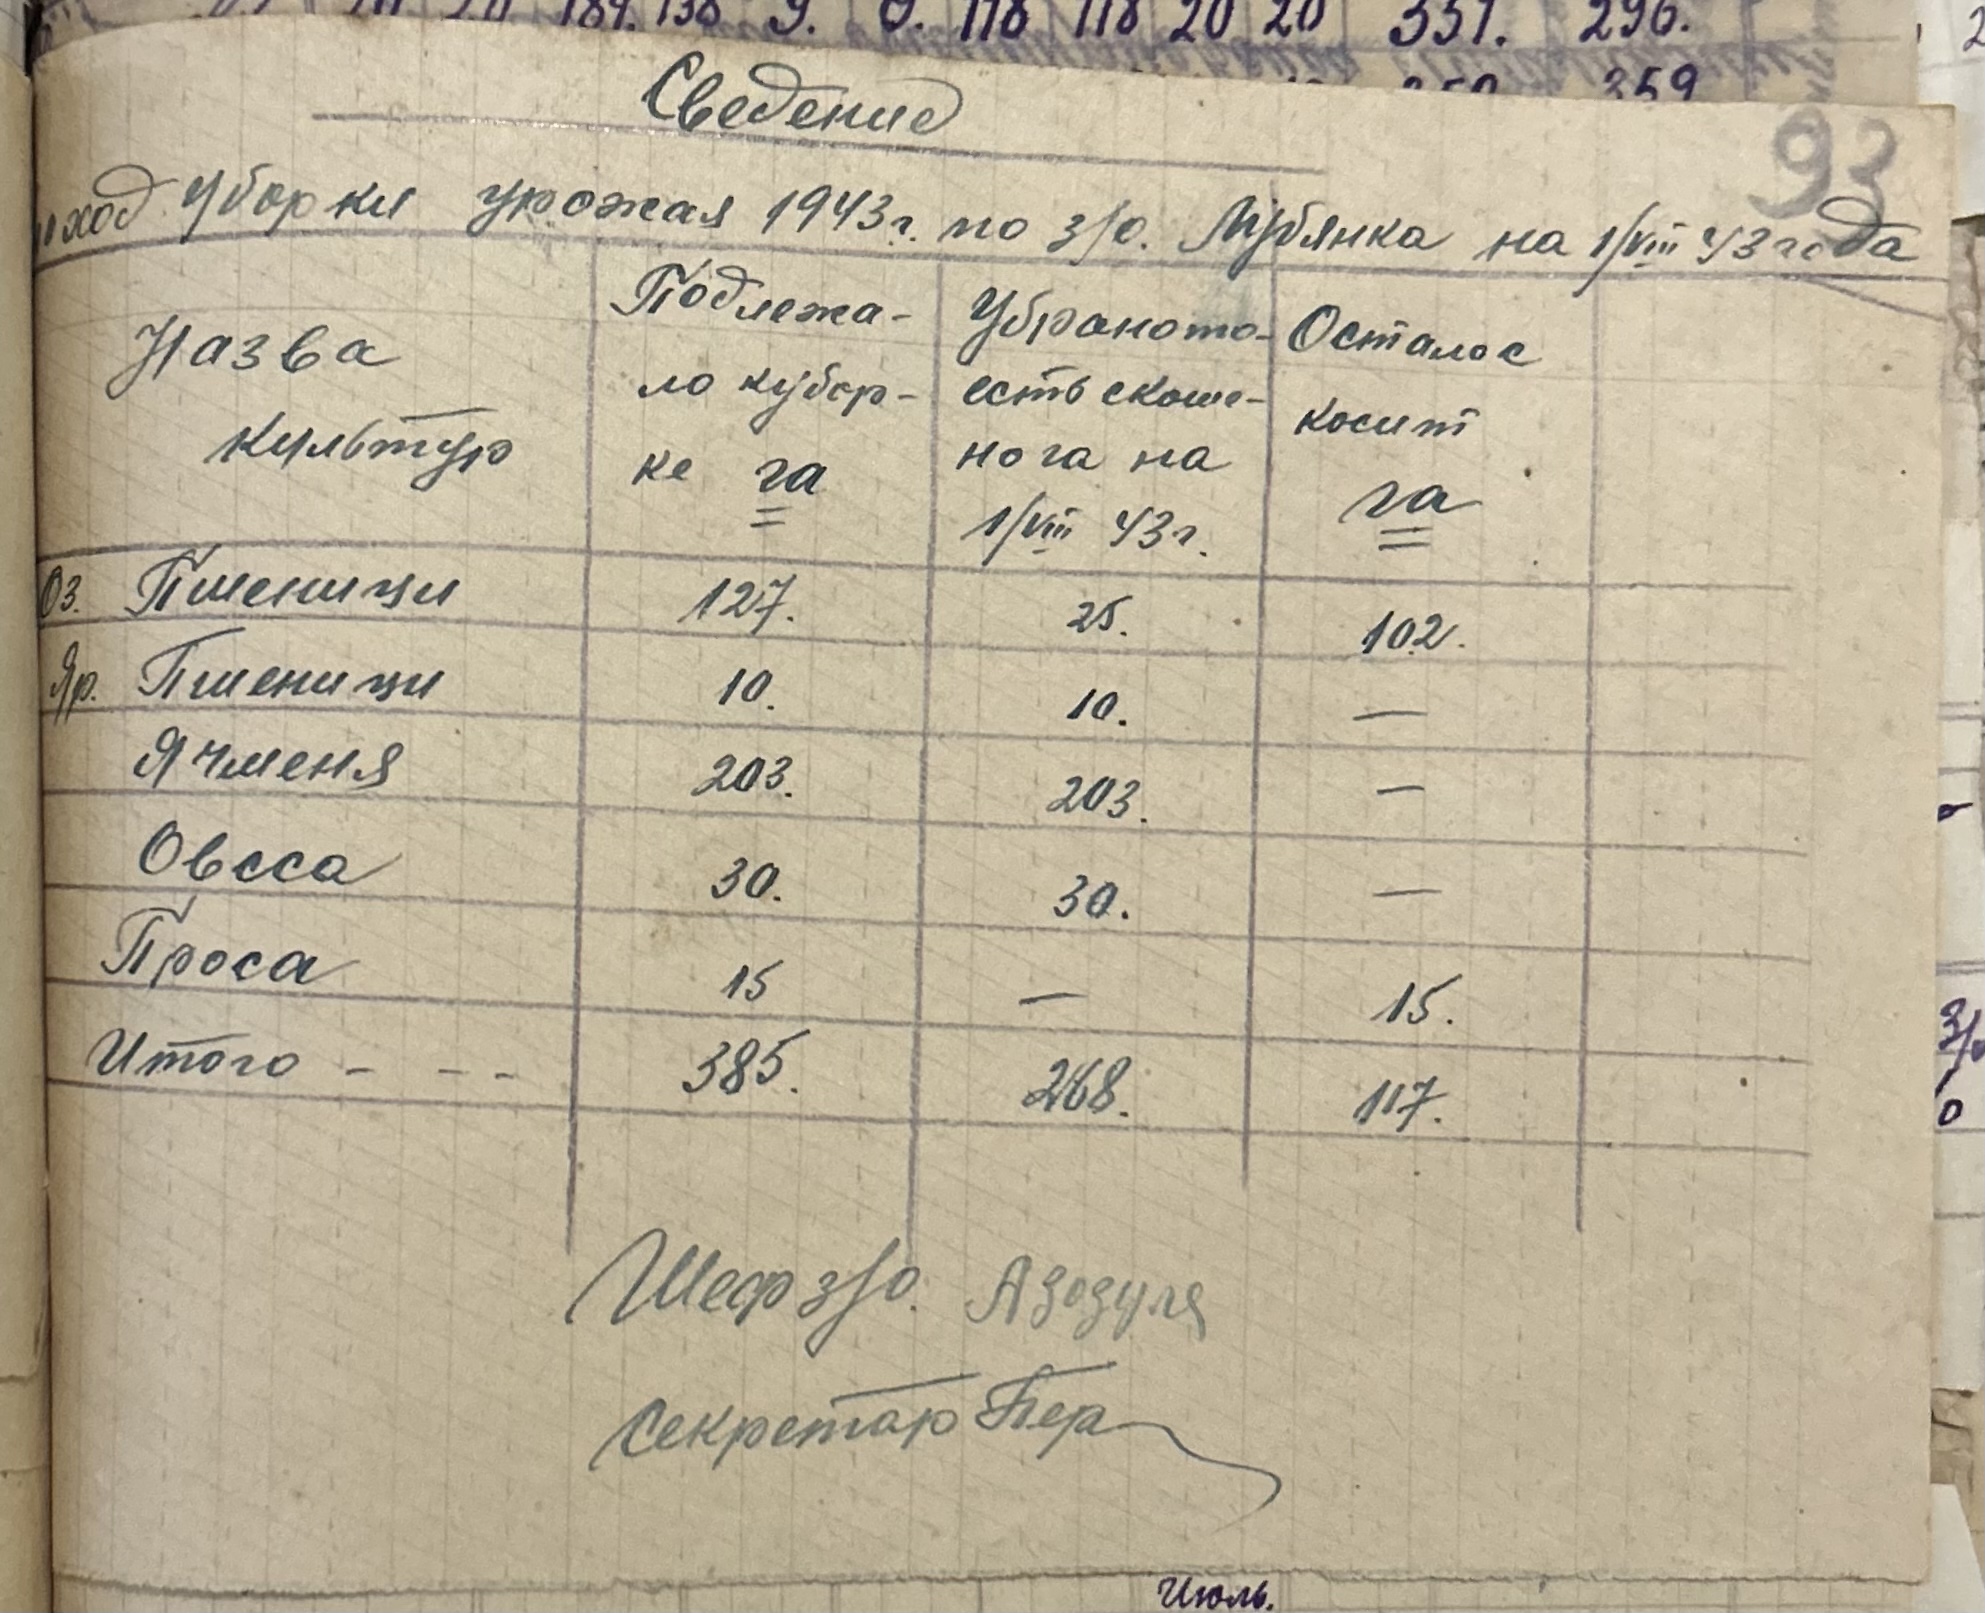 189. 138 9. 0. 118 118 20 20 351. 296.
359
Сведение
93
ход уборки урожая 1943г. по з/о. на 1/VIII 43 года
Назва культур
Подлежало куборке га
Убраното есть скошенога на 1/VIII 43г.
Осталос косит га
Оз. Пшеници 127. 25. 102.
Яр. Пшеници 10. 10. —
Ячменя 203. 203. —
Овсса 30. 30. —
Проса 15 — 15.
Итого - - - 385. 268. 117.
Шеф з/о. Азозуля
Секретар Пер
Июль.